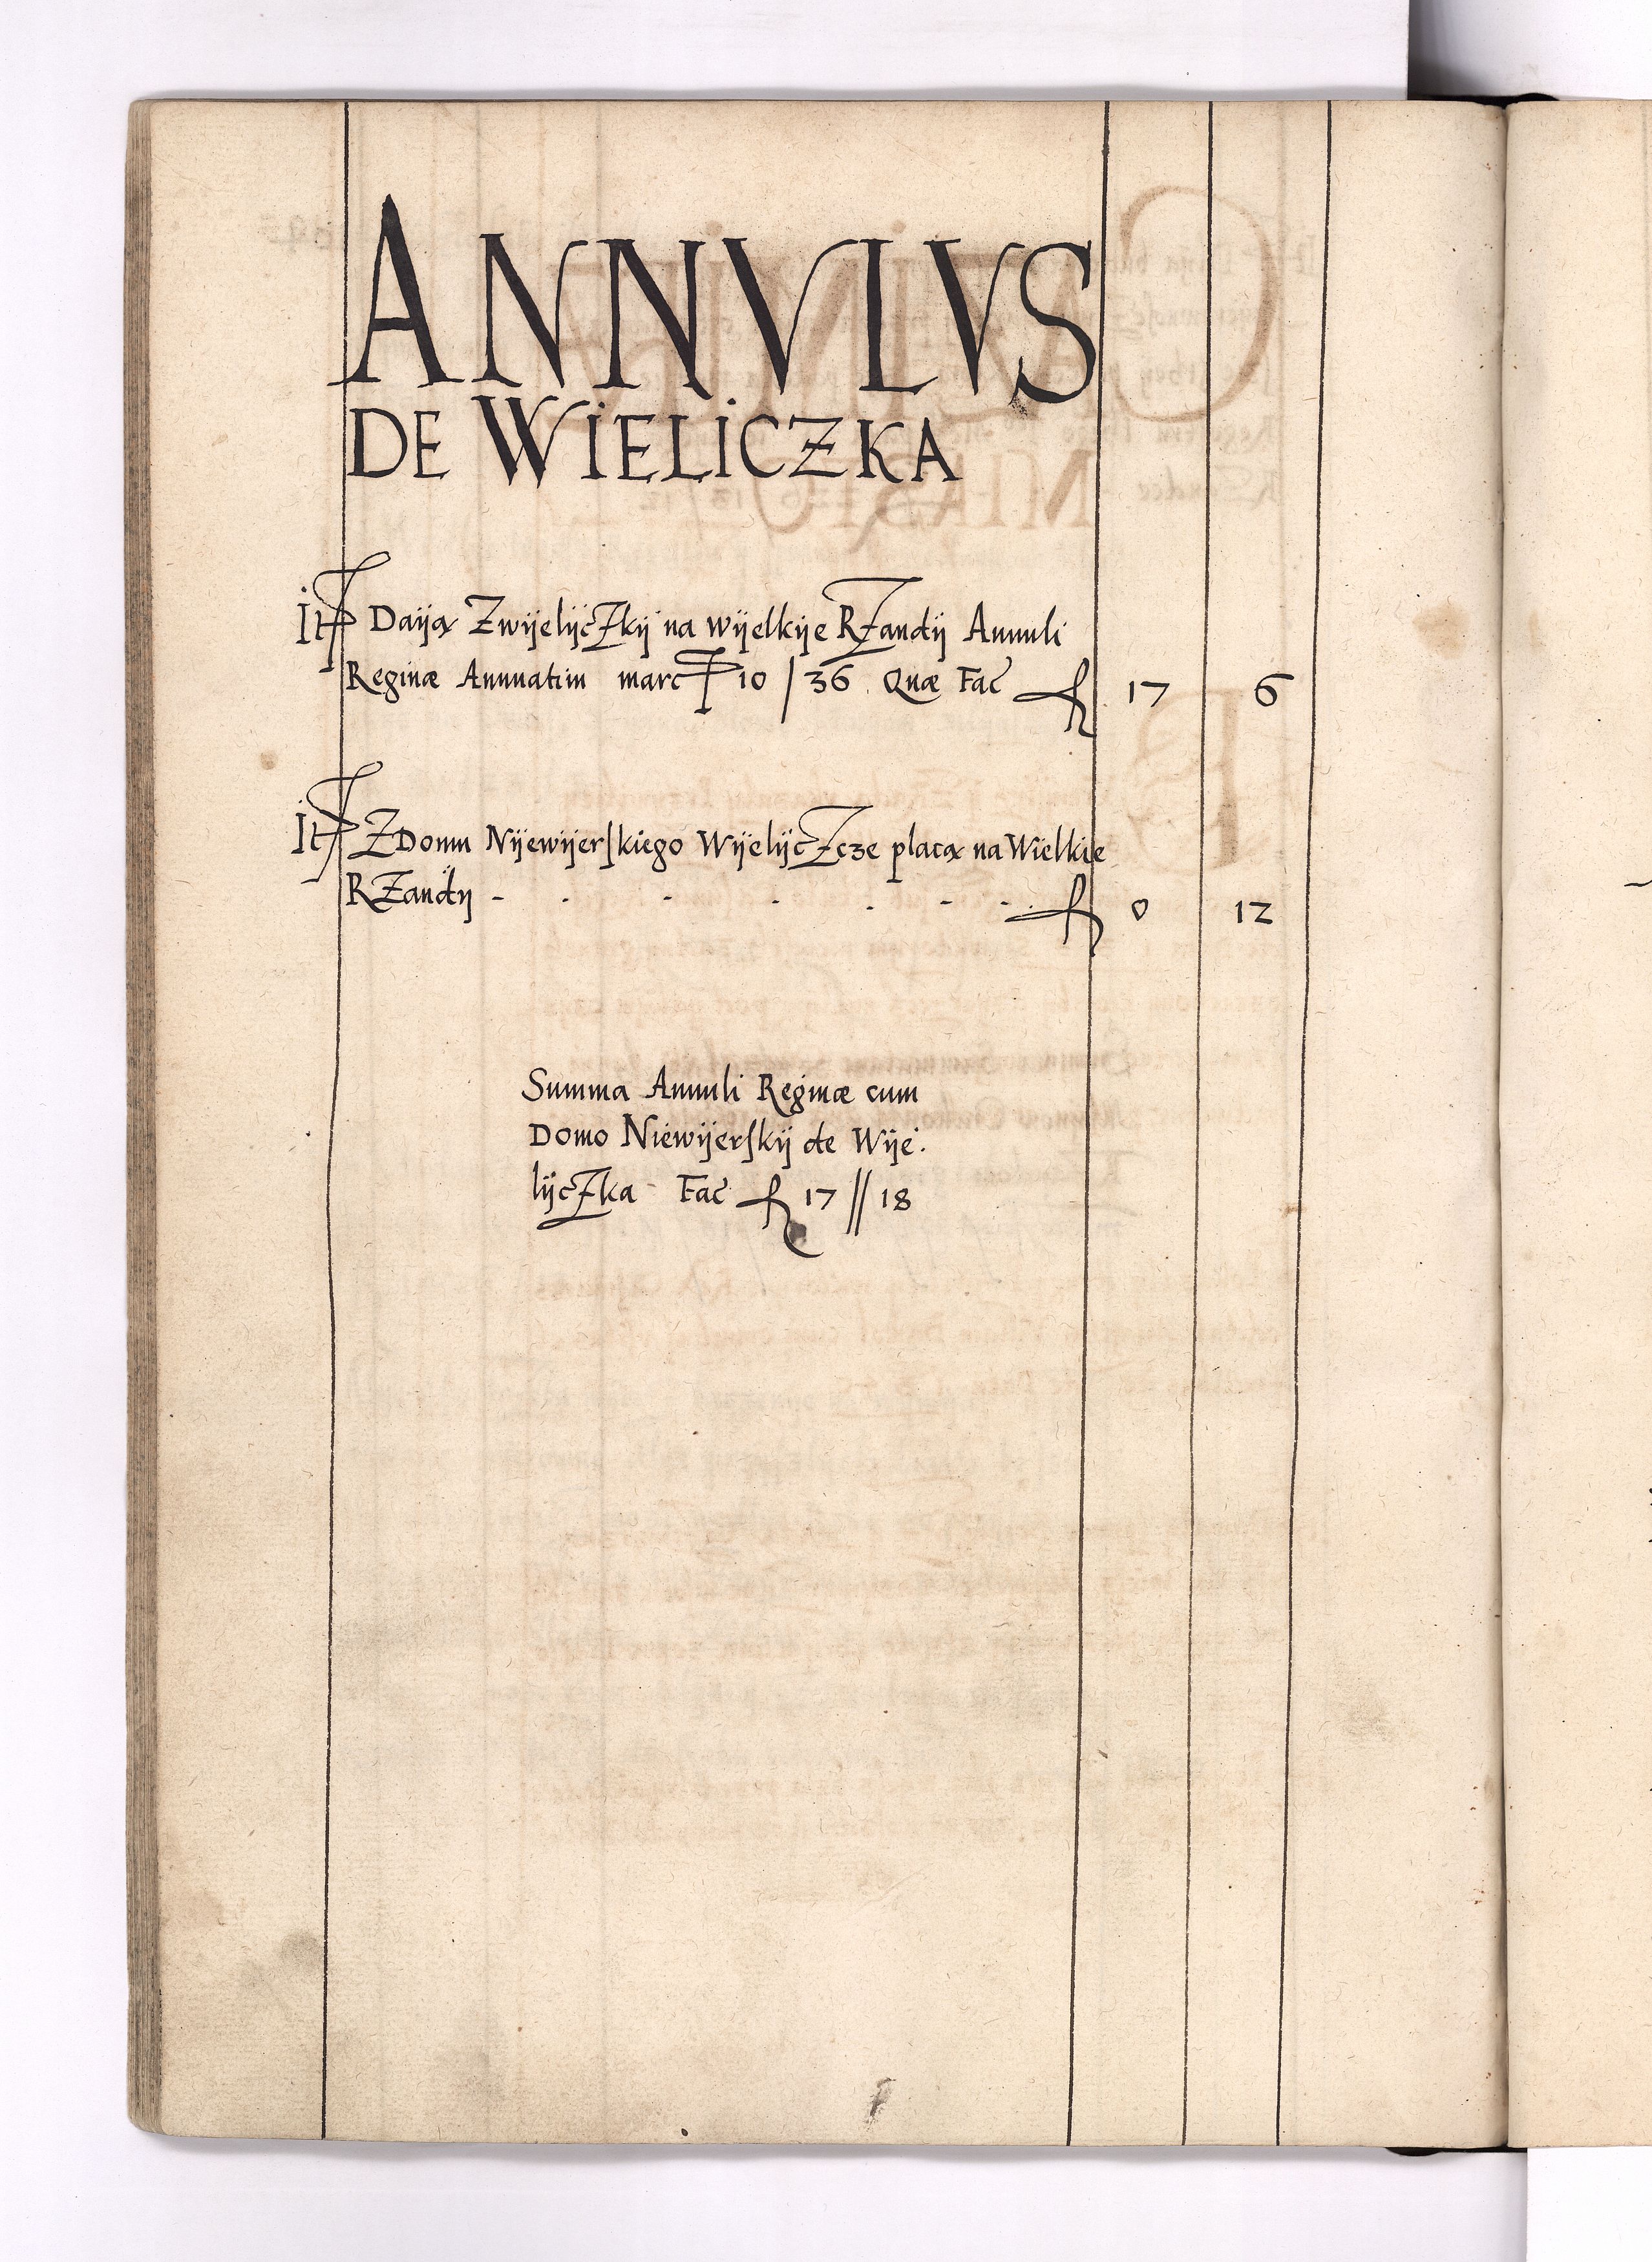 ANNVLVS
DE WIELICZKA
It Daÿą Zwÿelÿczkÿ na wÿelkÿe RZandÿ Annuli
Reginæ Annuatim marc 10 / 36 Quæ Fac̃ fl 17 6
It Z Domu Nÿewÿerskiego Wÿelÿczcze placą na Wielkie
RZandÿ - - - - - - - fl 0 12
Summa Annuli Reginæ cum
Domo Niewÿerskÿ de Wÿe.
lÿczka Fac̃ fl 17 // 18